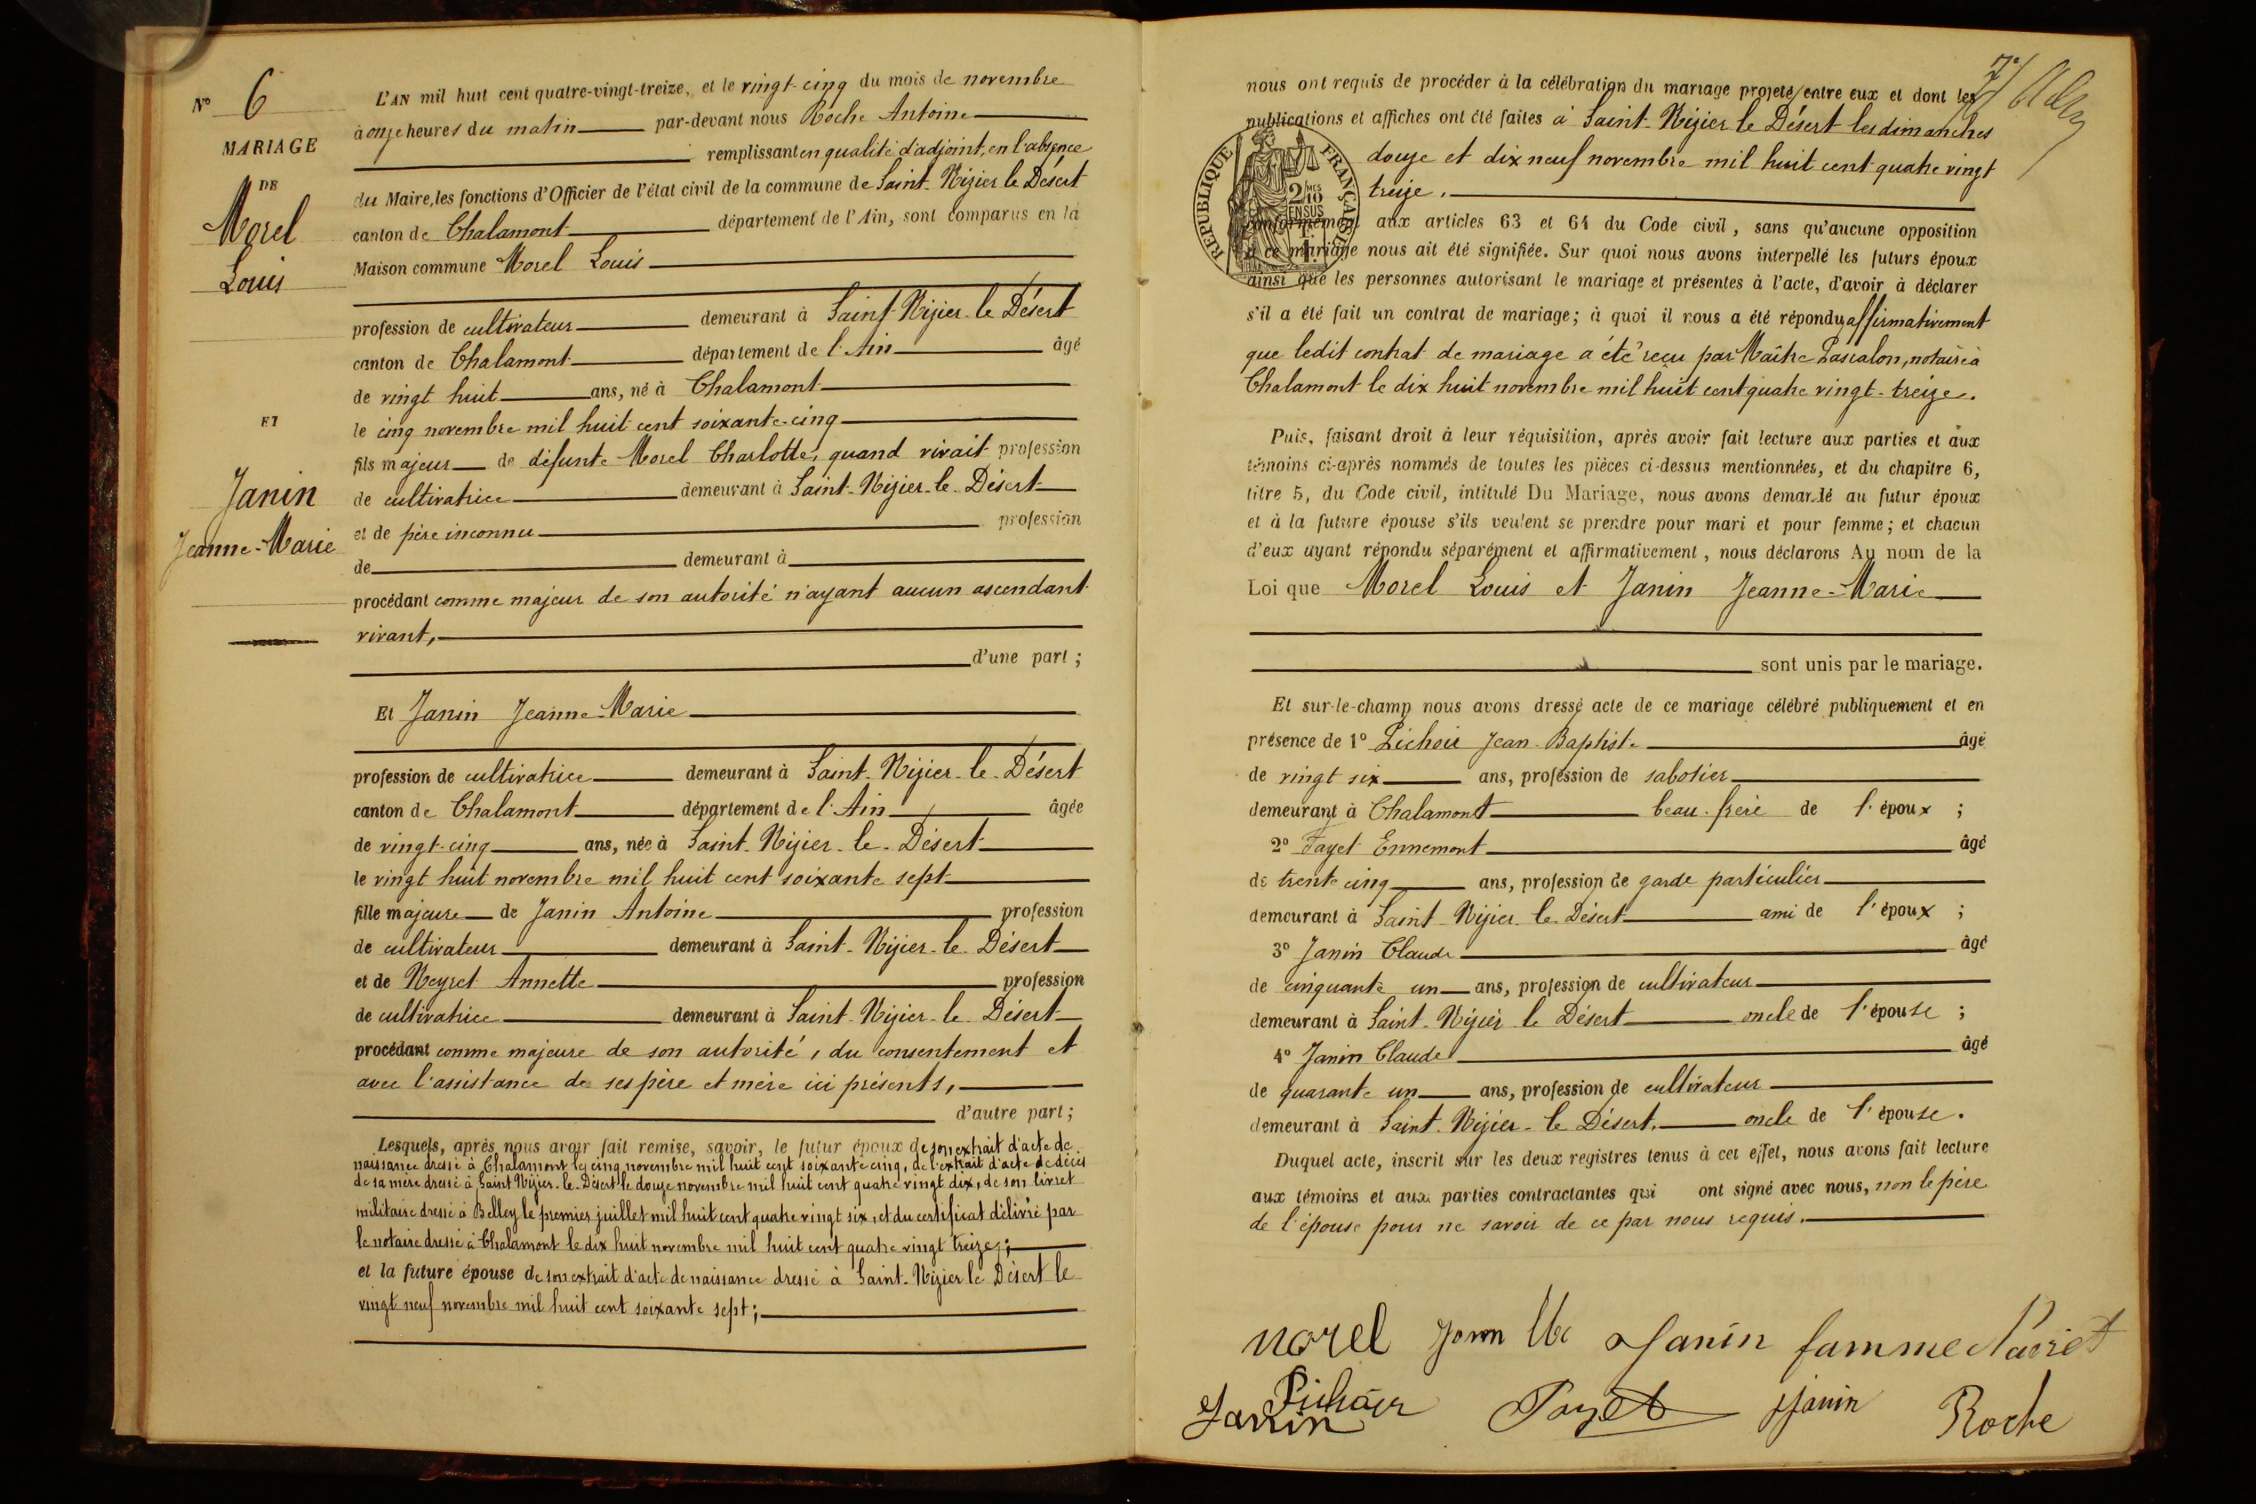 N° 6
MARIAGE
DE
Morel
Louis
ET
Janin
Jeanne-Marie
L'AN mil huit cent quatre-vingt-treize, et le vingt-cinq du mois de novembre
à onze heures du matin par-devant nous Roche Antoine
remplissant en qualité d'adjoint, en l'absence
du Maire, les fonctions d'Officier de l'état civil de la commune de Saint-Nizier le Désert
canton de Chalamont département de l'Ain, sont comparus en la
Maison commune Morel Louis
profession de cultivateur demeurant à Saint-Nizier-le Désert
canton de Chalamont département de l'Ain âgé
de vingt huit ans, né à Chalamont
le cinq novembre mil huit cent soixante-cinq
fils majeur de défunte Morel Charlotte, quand vivait profession
de cultivatrice demeurant à Saint-Nizier-le-Désert
et de père inconnu profession
de demeurant à
procédant comme majeur de son autorité n'ayant aucun ascendant
vivant,
d'une part ;
Et Janin Jeanne-Marie
profession de cultivatrice demeurant à Saint-Nizier-le-Désert
canton de Chalamont département de l'Ain âgée
de vingt-cinq ans, née à Saint-Nizier-le-Désert
le vingt huit novembre mil huit cent soixante sept
fille majeure de Janin Antoine profession
de cultivateur demeurant à Saint-Nizier-le-Désert
et de Neyret Annette profession
de cultivatrice demeurant à Saint-Nizier-le-Désert
procédant comme majeure de son autorité, du consentement et
avec l'assistance de ses père et mère ici présents,
d'autre part ;
Lesquels, après nous avoir fait remise, savoir, le futur époux de son extrait d'acte de
naissance dressé à Chalamont le cinq novembre mil huit cent soixante cinq, de l'extrait d'acte de décès
de sa mère dressé à Saint Nizier-le-Désert le douze novembre mil huit cent quatre vingt dix, de son livret
militaire dressé à Belley le premier juillet mil huit cent quatre vingt six, et du certificat délivré par
le notaire dressé à Chalamont le dix huit novembre mil huit cent quatre vingt treize ;
et la future épouse de son extrait d'acte de naissance dressé à Saint-Nizier le Désert le
vingt neuf novembre mil huit cent soixante sept ;
7e
nous ont requis de procéder à la célébration du mariage projeté entre eux et dont les
publications et affiches ont été faites à Saint-Nizier le Désert les dimanches
douze et dix neuf novembre mil huit cent quatre vingt
treize.
RÉPUBLIQUE FRANÇAISE
2/10 MES EN SUS
conformément aux articles 63 et 64 du Code civil, sans qu'aucune opposition
à ce mariage nous ait été signifiée. Sur quoi nous avons interpellé les futurs époux
ainsi que les personnes autorisant le mariage et présentes à l'acte, d'avoir à déclarer
s'il a été fait un contrat de mariage ; à quoi il nous a été répondu affirmativement
que ledit contrat de mariage a été reçu par Maître Lascalon, notaire à
Chalamont le dix huit novembre mil huit cent quatre vingt-treize.
Puis, faisant droit à leur réquisition, après avoir fait lecture aux parties et aux
témoins ci-après nommés de toutes les pièces ci-dessus mentionnées, et du chapitre 6,
titre 5, du Code civil, intitulé Du Mariage, nous avons demandé au futur époux
et à la future épouse s'ils veulent se prendre pour mari et pour femme ; et chacun
d'eux ayant répondu séparément et affirmativement, nous déclarons Au nom de la
Loi que Morel Louis et Janin Jeanne-Marie
sont unis par le mariage.
Et sur-le-champ nous avons dressé acte de ce mariage célébré publiquement et en
présence de 1° Pichoir Jean-Baptiste âgé
de vingt six ans, profession de sabotier
demeurant à Chalamont beau-frère de l'époux ;
2° Fayet Ennemont âgé
de trente cinq ans, profession de garde particulier
demeurant à Saint-Nizier-le-Désert ami de l'époux ;
3° Janin Claude âgé
de cinquante un ans, profession de cultivateur
demeurant à Saint-Nizier le Désert oncle de l'épouse ;
4° Janin Claude âgé
de quarante un ans, profession de cultivateur
demeurant à Saint-Nizier-le Désert. oncle de l'épouse.
Duquel acte, inscrit sur les deux registres tenus à cet effet, nous avons fait lecture
aux témoins et aux parties contractantes qui ont signé avec nous, non le père
de l'épouse pour ne savoir de ce par nous requis.
morel Janin Janin famme Nairet
Pichoir
Janin Fayet Janin Roche